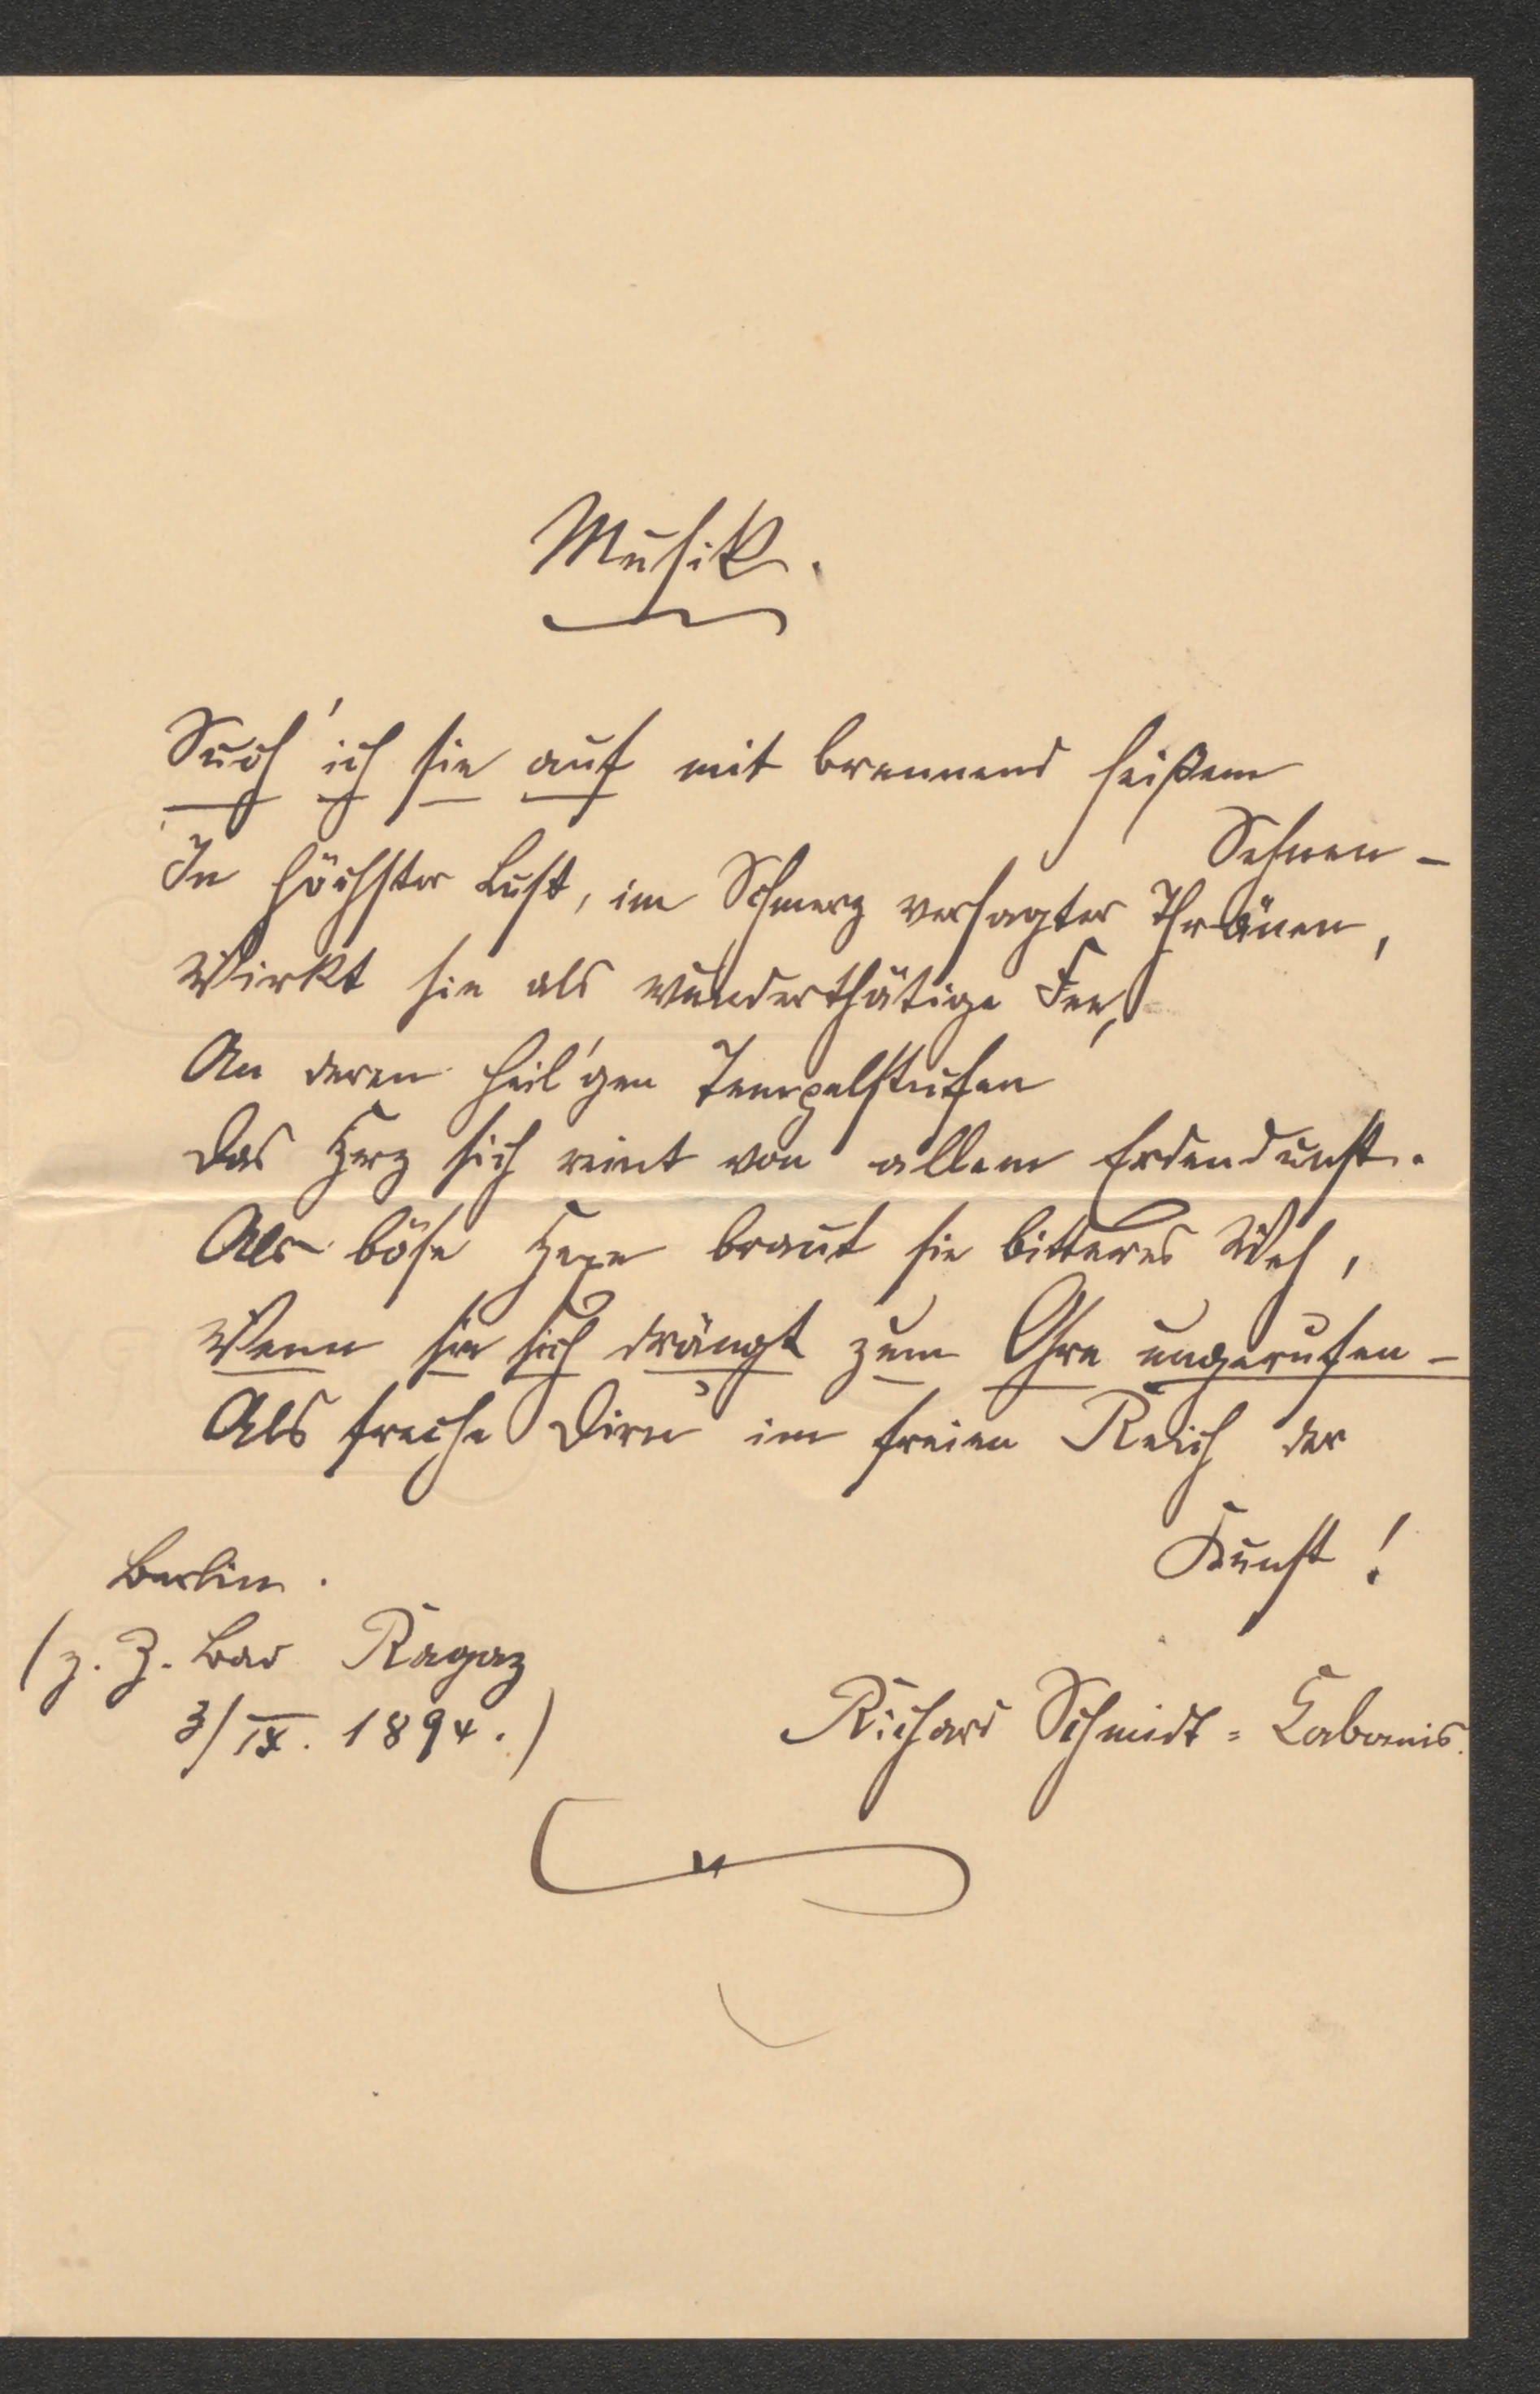 Musik.
Such' ich sie auf mit brennend heißem
Sehnen –
In höchster Lust, im Schmerz versagter Thränen,
Wirkt sie als wunderthätige Fee,
An deren heil'gen Tempelstufen
Das Herz sich reint von allem Erdendunst.
Als böse Hexe braut sie bitteres Weh,
Wenn sie sich drängt zum Ohre ungerufen –
Als freche Dirn' im freien Reich der
Kunst!
Berlin.
(z. Z. Bad Ragaz
3/IX. 1894.)
Richard Schmidt=Cabanis.